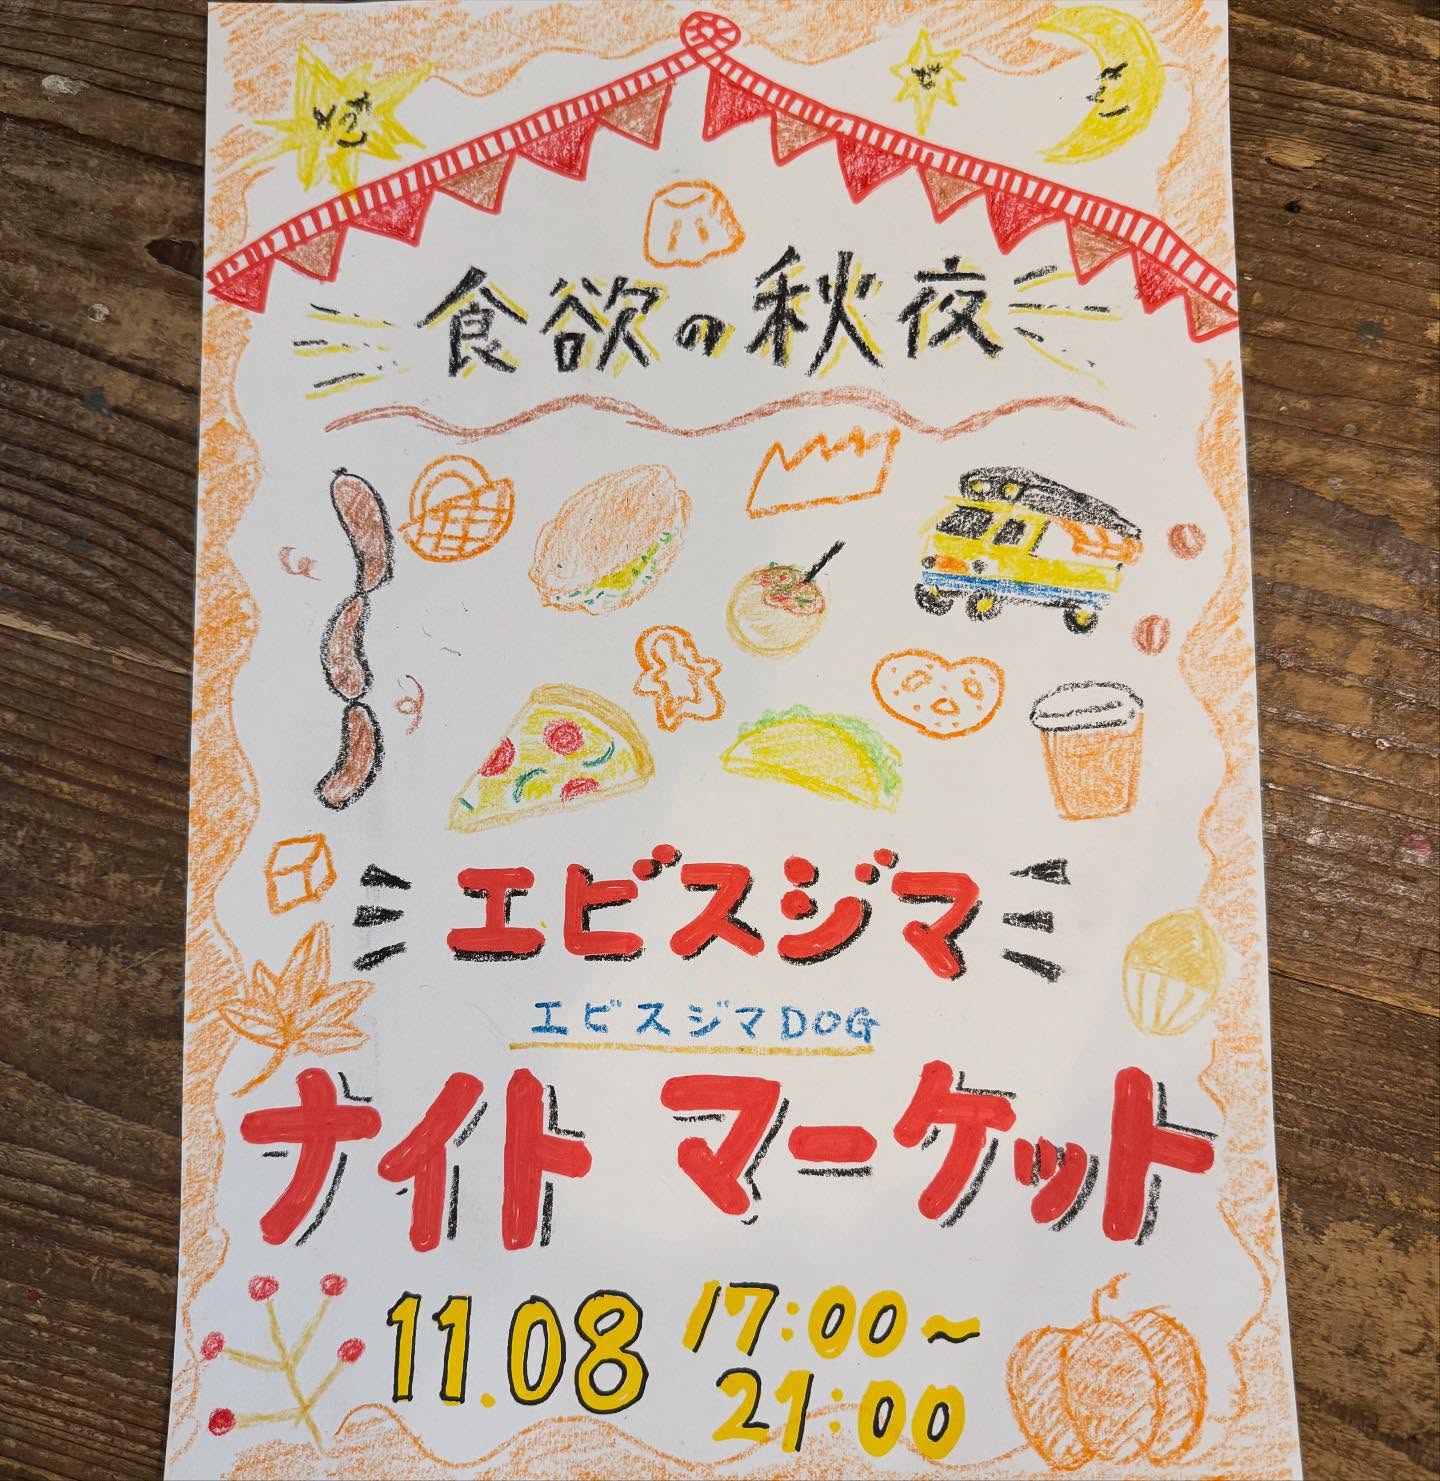 食欲の秋夜
エビスジマ
エビスジマDOG
ナイト マーケット
11.08 17:00~
21:00